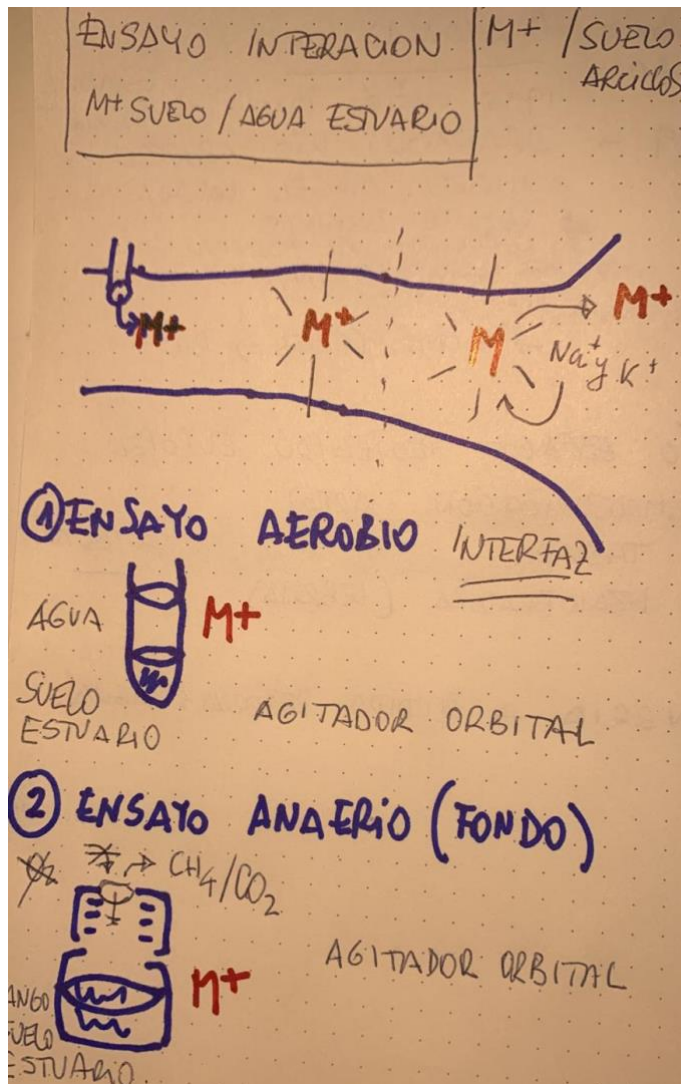 ENSAYO INTERACION
M+ SUELO / AGUA ESTUARIO
M+ / SUELO
ARCILLOS
M+
M+
M
M+
Na+ y K+
① ENSAYO AEROBIO
INTERFAZ
AGUA
M+
SUELO
ESTUARIO
AGITADOR ORBITAL
② ENSAYO ANAERIO (FONDO)
O2
CH4/CO2
M+
AGITADOR ORBITAL
ANGO
SUELO
ESTUARIO